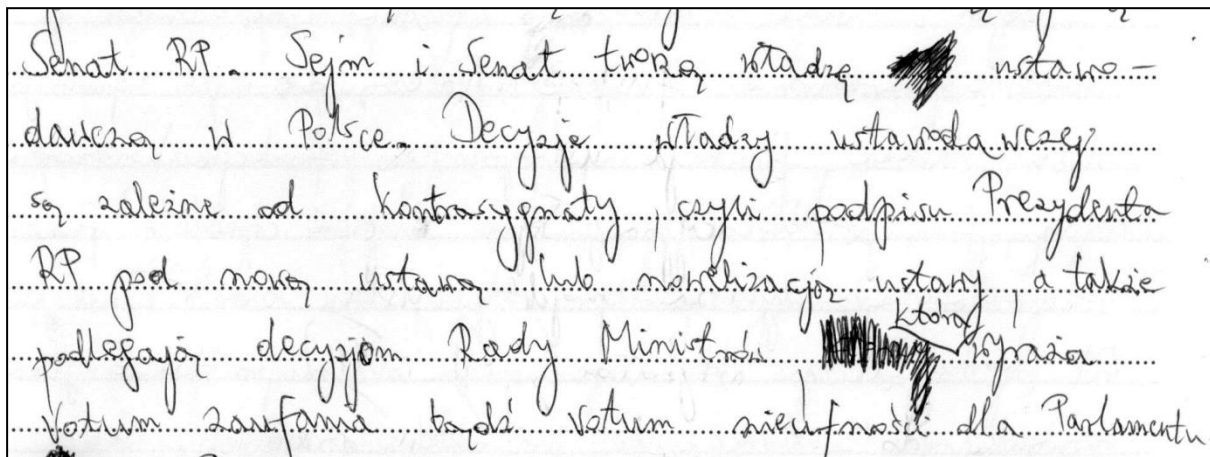 Senat RP. Sejm i Senat tworzą władzę ustawo-
dawczą w Polsce. Decyzje władzy ustawodawczej
są zależne od kontrasygnaty, czyli podpisu Prezydenta
RP pod nową ustawą lub nowelizacją ustawy, a także
podlegają decyzjom Rady Ministrów która wyraża
Votum zaufania bądź votum nieufności dla Parlamentu.